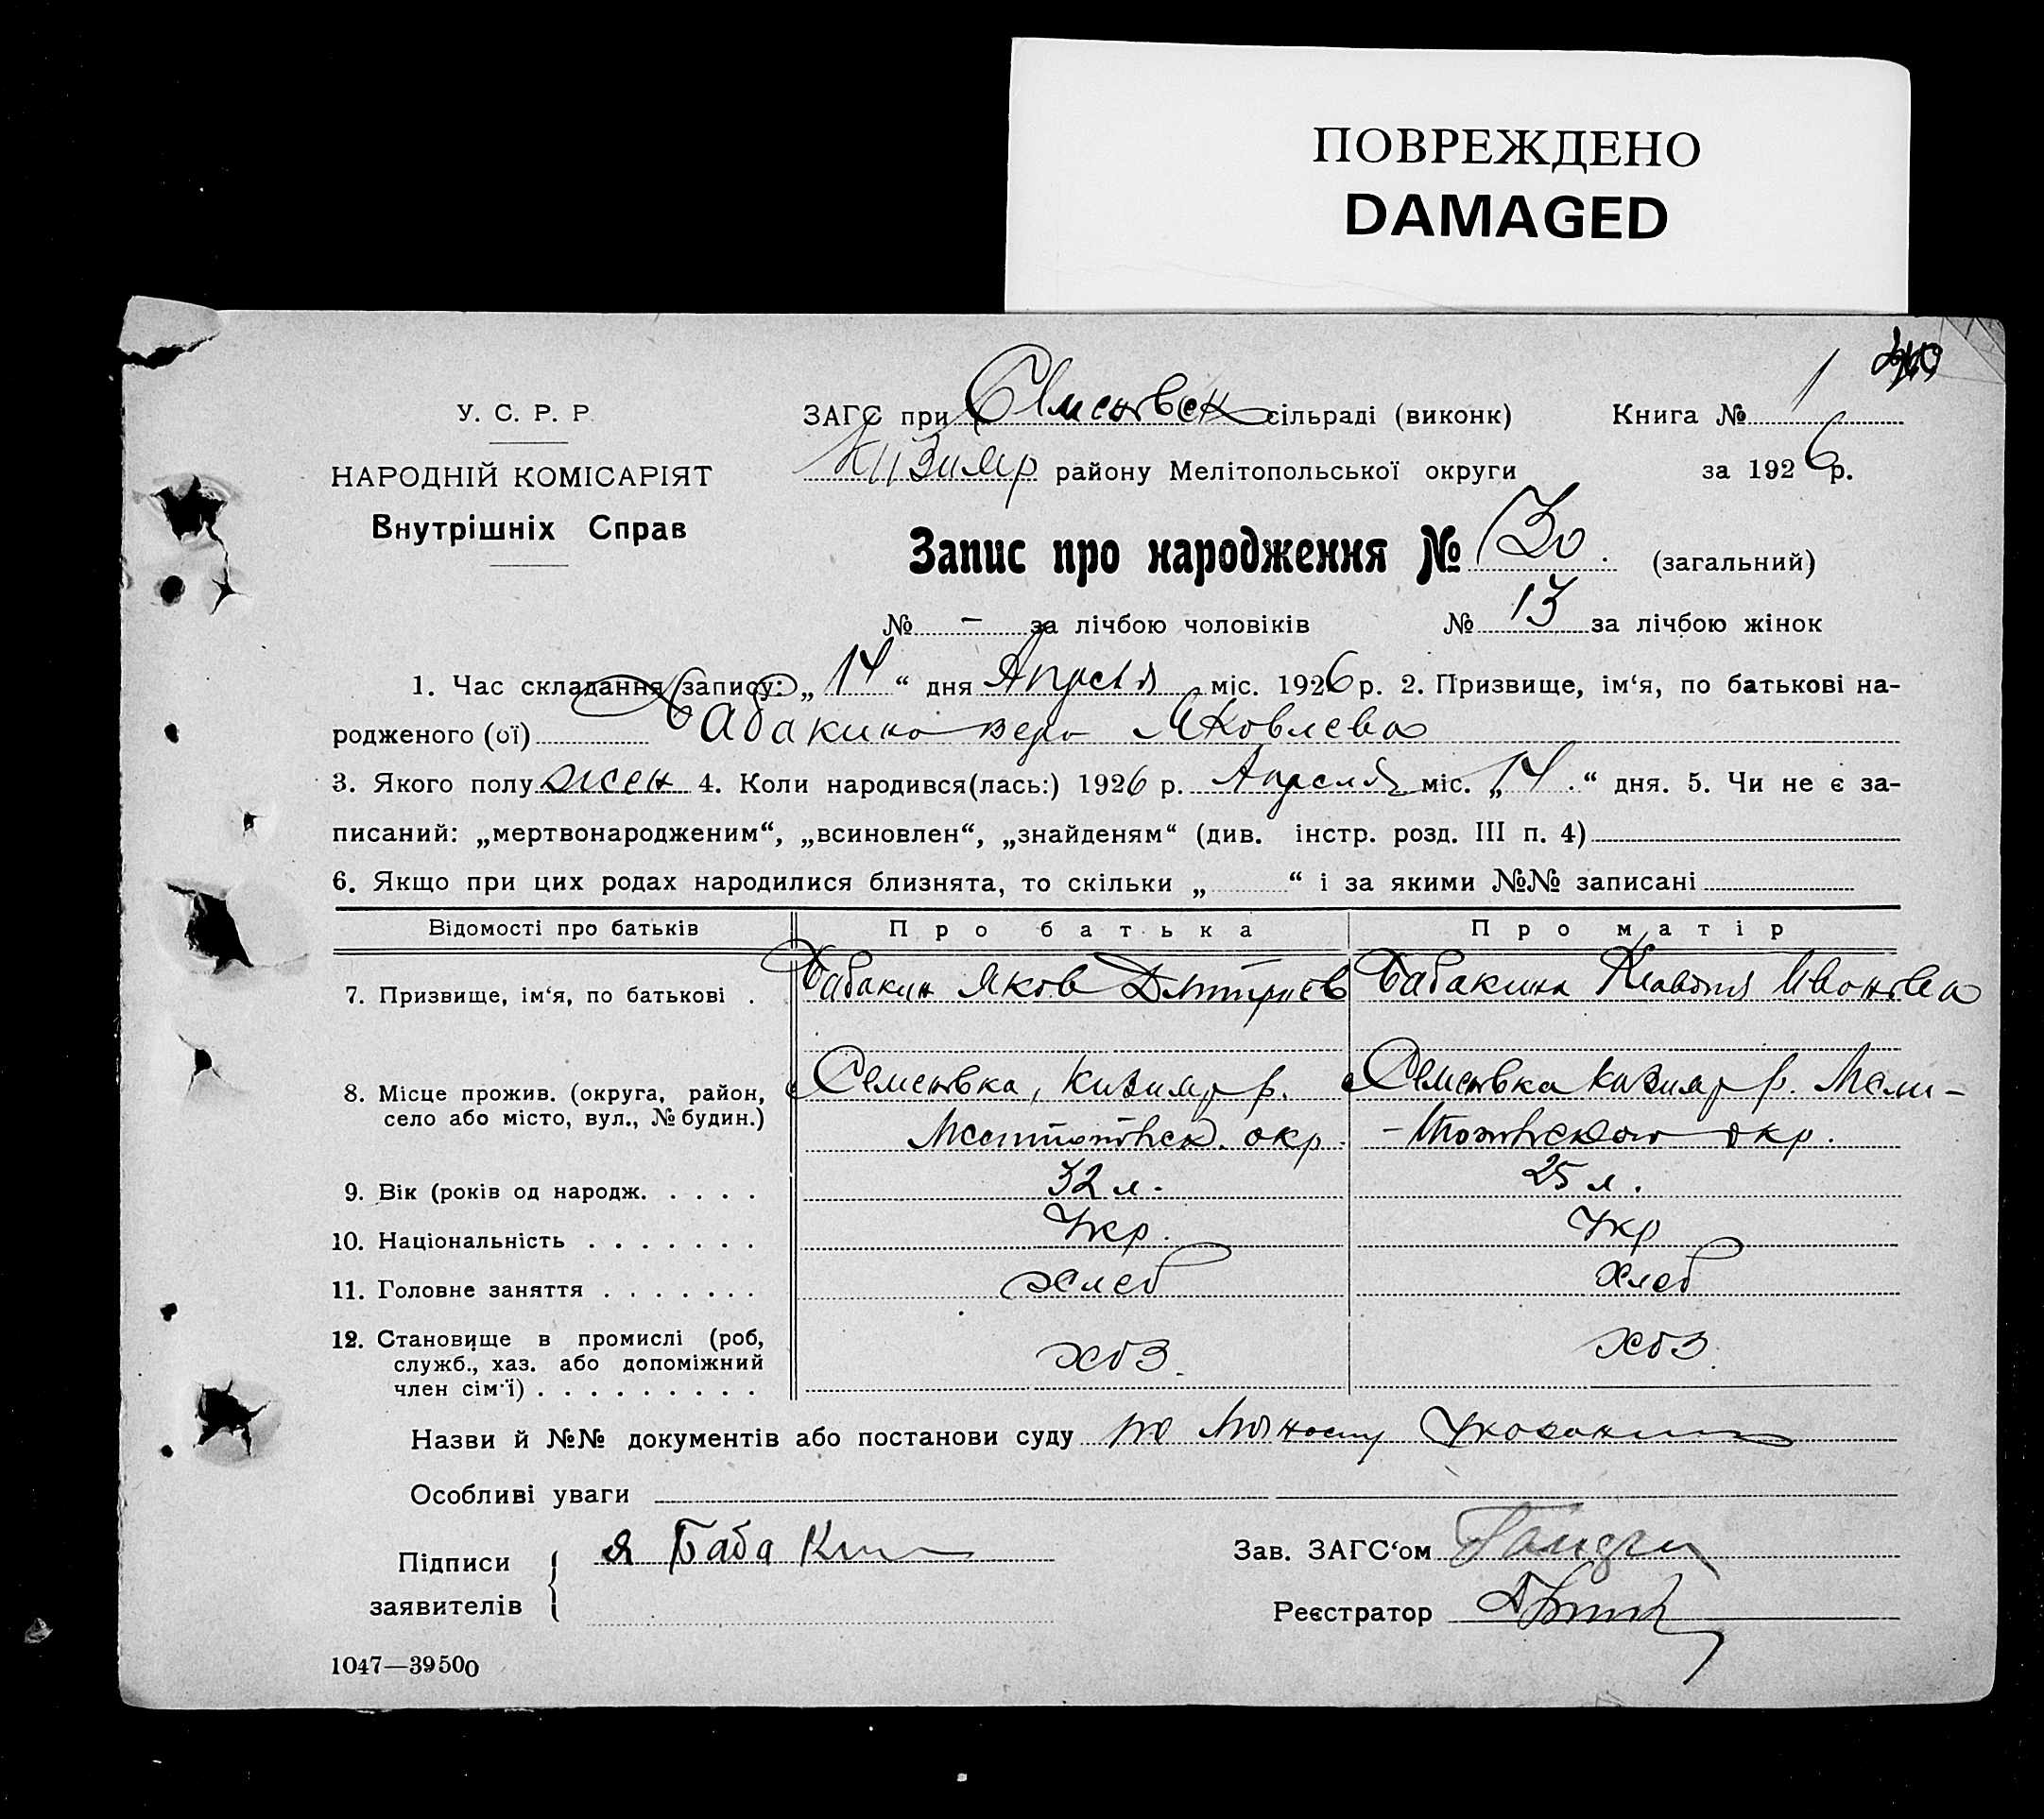 ПОВРЕЖДЕНО
DAMAGED
У. С. Р. Р.
НАРОДНІЙ КОМІСАРІЯТ
Внутрішніх Справ
ЗАГС при Семеновск сільраді (виконк)
Кизияр району Мелітопольської округи
Книга № 1
за 1926 р.
Запис про народження № 30. (загальний)
№ – за лічбою чоловіків № 13 за лічбою жінок
1. Час складання запису: „14“ дня Апреля міс. 1926 р. 2. Призвище, ім‘я, по батькові на-
родженого (ої) Бабакина Вера Яковлева
3. Якого полу жен 4. Коли народився(лась:) 1926 р. Апреля міс. „14.“ дня. 5. Чи не є за-
писаний: „мертвонародженим“, „всиновлен“, „знайденям“ (див. інстр. розд. III п. 4)
6. Якщо при цих родах народилися близнята, то скільки „ “ і за якими №№ записані
Відомості про батьків Про батька Про матір
7. Призвище, ім‘я, по батькові . Бабакин Яков Дмитриев Бабакина Клавдия Иванова
8. Місце прожив. (округа, район, село або місто, вул., № будин.) Семеновка, Кизияр р. Семеновка Кизияр р. Мели-
окр. окр.
9. Вік (років од народж. . . . . 32 л. 25 л.
10. Національність . . . . . . . Укр. Укр
11. Головне заняття . . . . . . . хлеб хлеб
12. Становище в промислі (роб, служб., хаз. або допоміжний член сім‘ї) . . . . . . . . . хбз. хбз.
Назви й №№ документів або постанови суду по
Особливі уваги
Підписи заявителів { я Бабакин
Зав. ЗАГС‘ом
Реєстратор
1047—39500